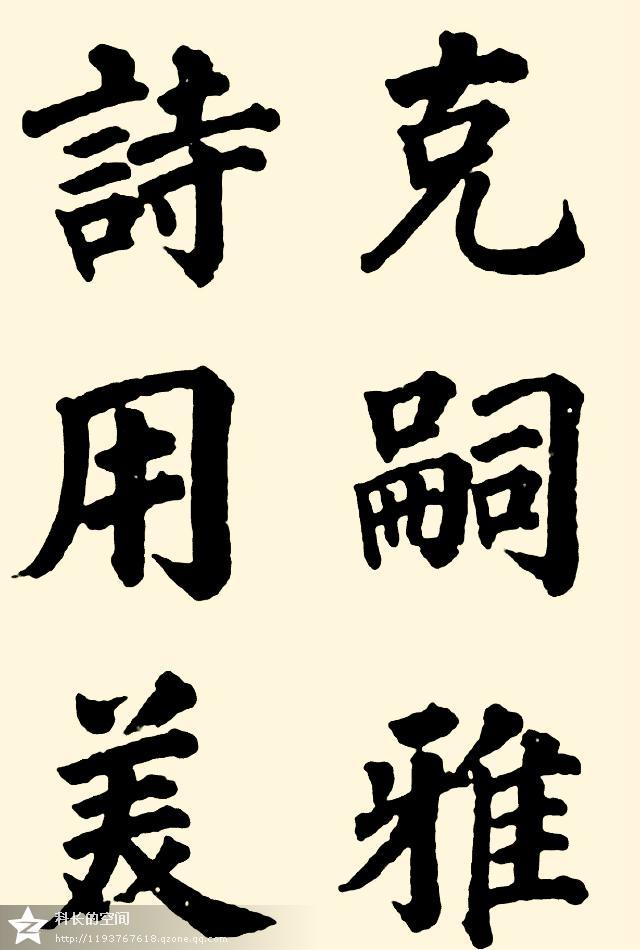 克嗣雅
詩用美
科长的空间
http://1193767618.qzone.qq.com